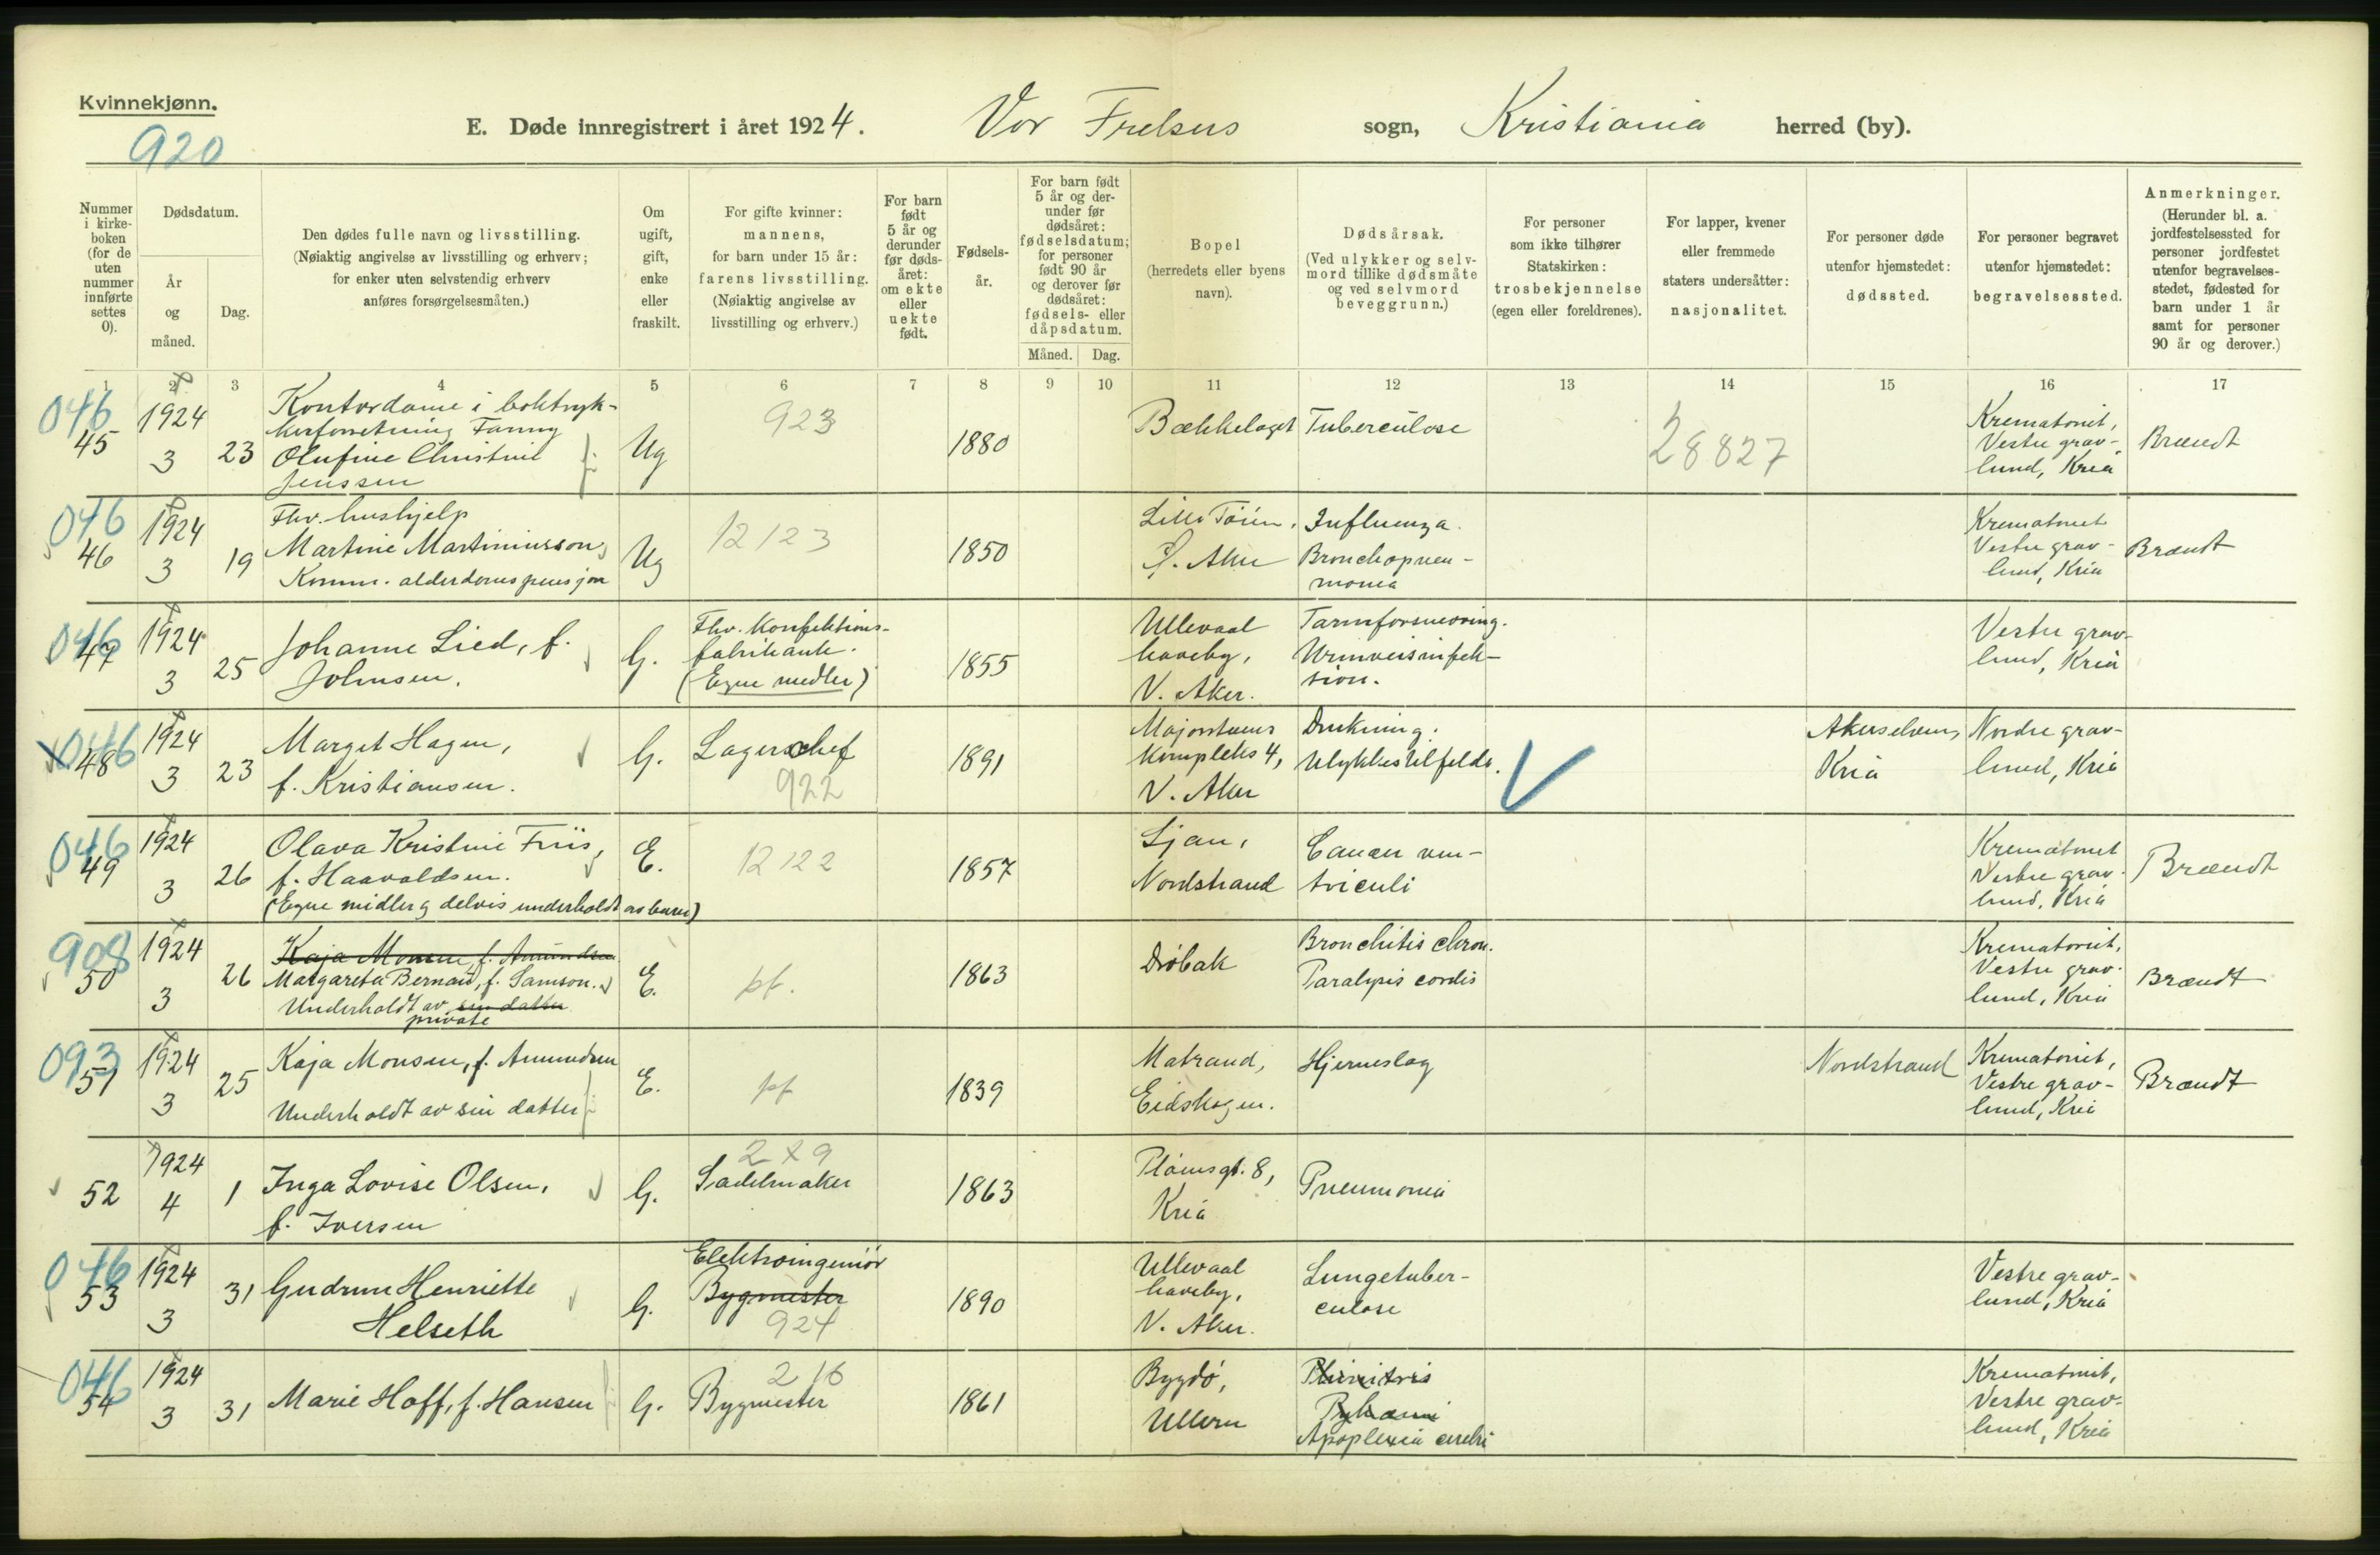 Kvinnekjønn.
920
E. Døde innregistrert i året 1924. Vor Frelsers sogn, Kristiania herred (by).
Nummer i kirke-boken (for de uten nummer innførte settes 0).
Dødsdatum.
År og måned.
Dag.
Den dødes fulle navn og livsstilling.
(Nøiaktig angivelse av livsstilling og erhverv;
for enker uten selvstendig erhverv
anføres forsørgelsesmåten.)
Om ugift, gift, enke eller fraskilt.
For gifte kvinner:
mannens,
for barn under 15 år:
farens livsstilling.
(Nøiaktig angivelse av
livsstilling og erhverv.)
For barn født 5 år og derunder før døds-året: om ekte eller uekte født.
Fødsels-år.
For barn født 5 år og der-under før dødsåret: fødselsdatum; for personer født 90 år og derover før dødsåret: fødsels- eller dåpsdatum.
Måned. Dag.
Bopel
(herredets eller byens
navn).
Dødsårsak.
(Ved ulykker og selv-
mord tillike dødsmåte
og ved selvmord
beveggrunn.)
For personer
som ikke tilhører
Statskirken:
trosbekjennelse
(egen eller foreldrenes).
For lapper, kvener
eller fremmede
staters undersåtter:
nasjonalitet.
For personer døde
utenfor hjemstedet:
dødssted.
For personer begravet
utenfor hjemstedet:
begravelsessted.
Anmerkninger.
(Herunder bl. a.
jordfestelsessted for
personer jordfestet
utenfor begravelses-
stedet, fødested for
barn under 1 år
samt for personer
90 år og derover.)
1 2 3 4 5 6 7 8 9 10 11 12 13 14 15 16 17
046
45
1924
3
23
Kontordame i boktryk-
kerforretning Fanny
Olufine Christine
Jenssen
Ug
923
1880
Bækkelaget
Tuberculose
28827
Krematoriet,
Vestre grav-
lund, Kria
Brændt
046
46
1924
3
19
Fhv. hushjelp
Martine Martiniussen,
Komm. alderdomspensjon
Ug
12123
1850
Lille Tøien,
Ø. Aker
Influenza.
Bronchopneu-
monia
Krematoriet
Vestre grav-
lund, Kria
Brændt
046
47
1924
3
25
Johanne Lied, f.
Johnsen.
G.
Fhv. Konfektions-
fabrikant.
(Egne midler)
1855
Ullevaal
haveby,
V. Aker.
Tarmforsnevring.
Urinveisinfek-
sion.
Vestre grav-
lund, Kria
046
48
1924
3
23
Margit Hagen,
f. Kristiansen.
G.
Lagerschef
922
1891
Majorstuens
Kompleks 4,
V. Aker
Drukning.
Ulykkestilfelde.
Akerselven,
Kria
Nordre grav-
lund, Kria
046
49
1924
3
26
Olava Kristine Friis,
f. Haavaldsen.
(Egne midler og delvis underholdt av barn)
E.
12122
1857
Ljan,
Nordstrand
Cancer ven-
triculi
Krematoriet
Vestre grav-
lund, Kria
Brændt
908
50
1924
3
26
Kaja Monsen, f. Amundsen
Margareta Bernard, f. Samson.
Underholdt av sin datter
private
E.
pf.
1863
Drøbak
Bronchitis chron.
Paralysis cordis
Krematoriet,
Vestre grav-
lund, Kria
Brændt
093
51
1924
3
25
Kaja Monsen, f. Amundsen
Underholdt av sin datter
E.
pf
1839
Matrand,
Eidskogen.
Hjerneslag
Nordstrand
Krematoriet,
Vestre grav-
lund, Kria
Brændt
52
1924
4
1
Inga Lovise Olsen,
f. Iversen
G.
2 x 9
Sadelmaker
1863
Pløensgt. 8,
Kria
Pneumonia
046
53
1924
3
31
Gudrun Henriette
Helseth
G.
Elektroingeniør
Bygmester
924
1890
Ullevaal
haveby,
V. Aker.
Lungetuber-
culose
Vestre grav-
lund, Kria
046
54
1924
3
31
Marie Hoff, f. Hansen
G.
216
Bygmester
1861
Bygdø,
Ullern
Apoplexia cerebri
Krematoriet,
Vestre grav-
lund, Kria